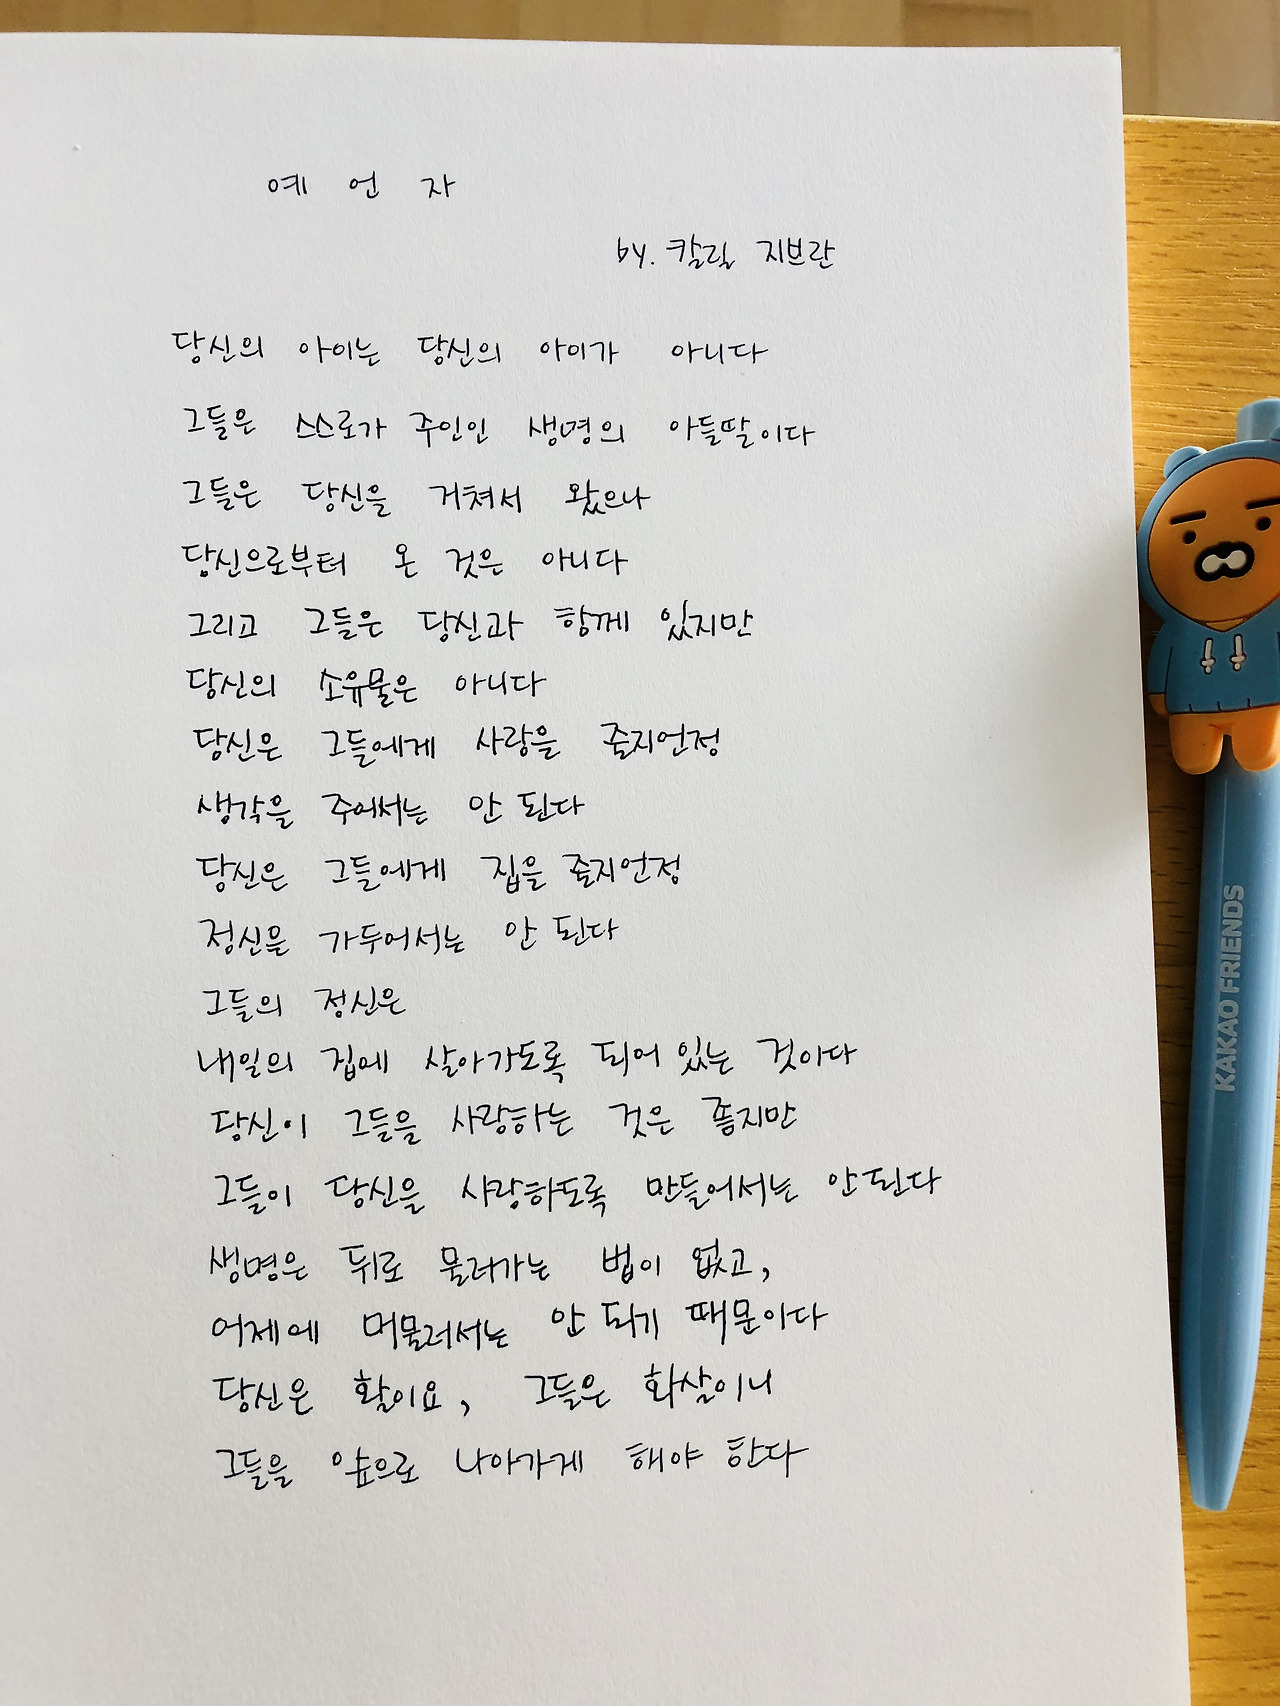 예 언 자
by. 칼릴 지브란
당신의 아이는 당신의 아이가 아니다
그들은 스스로가 주인인 생명의 아들딸이다
그들은 당신을 거쳐서 왔으나
당신으로부터 온 것은 아니다
그리고 그들은 당신과 함께 있지만
당신의 소유물은 아니다
당신은 그들에게 사랑을 줄지언정
생각을 주어서는 안 된다
당신은 그들에게 집을 줄지언정
정신을 가두어서는 안 된다
그들의 정신은
내일의 집에 살아가도록 되어 있는 것이다
당신이 그들을 사랑하는 것은 좋지만
그들이 당신을 사랑하도록 만들어서는 안 된다
생명은 뒤로 물러가는 법이 없고,
어제에 머물러서는 안 되기 때문이다
당신은 활이요, 그들은 화살이니
그들을 앞으로 나아가게 해야 한다
KAKAO FRIENDS